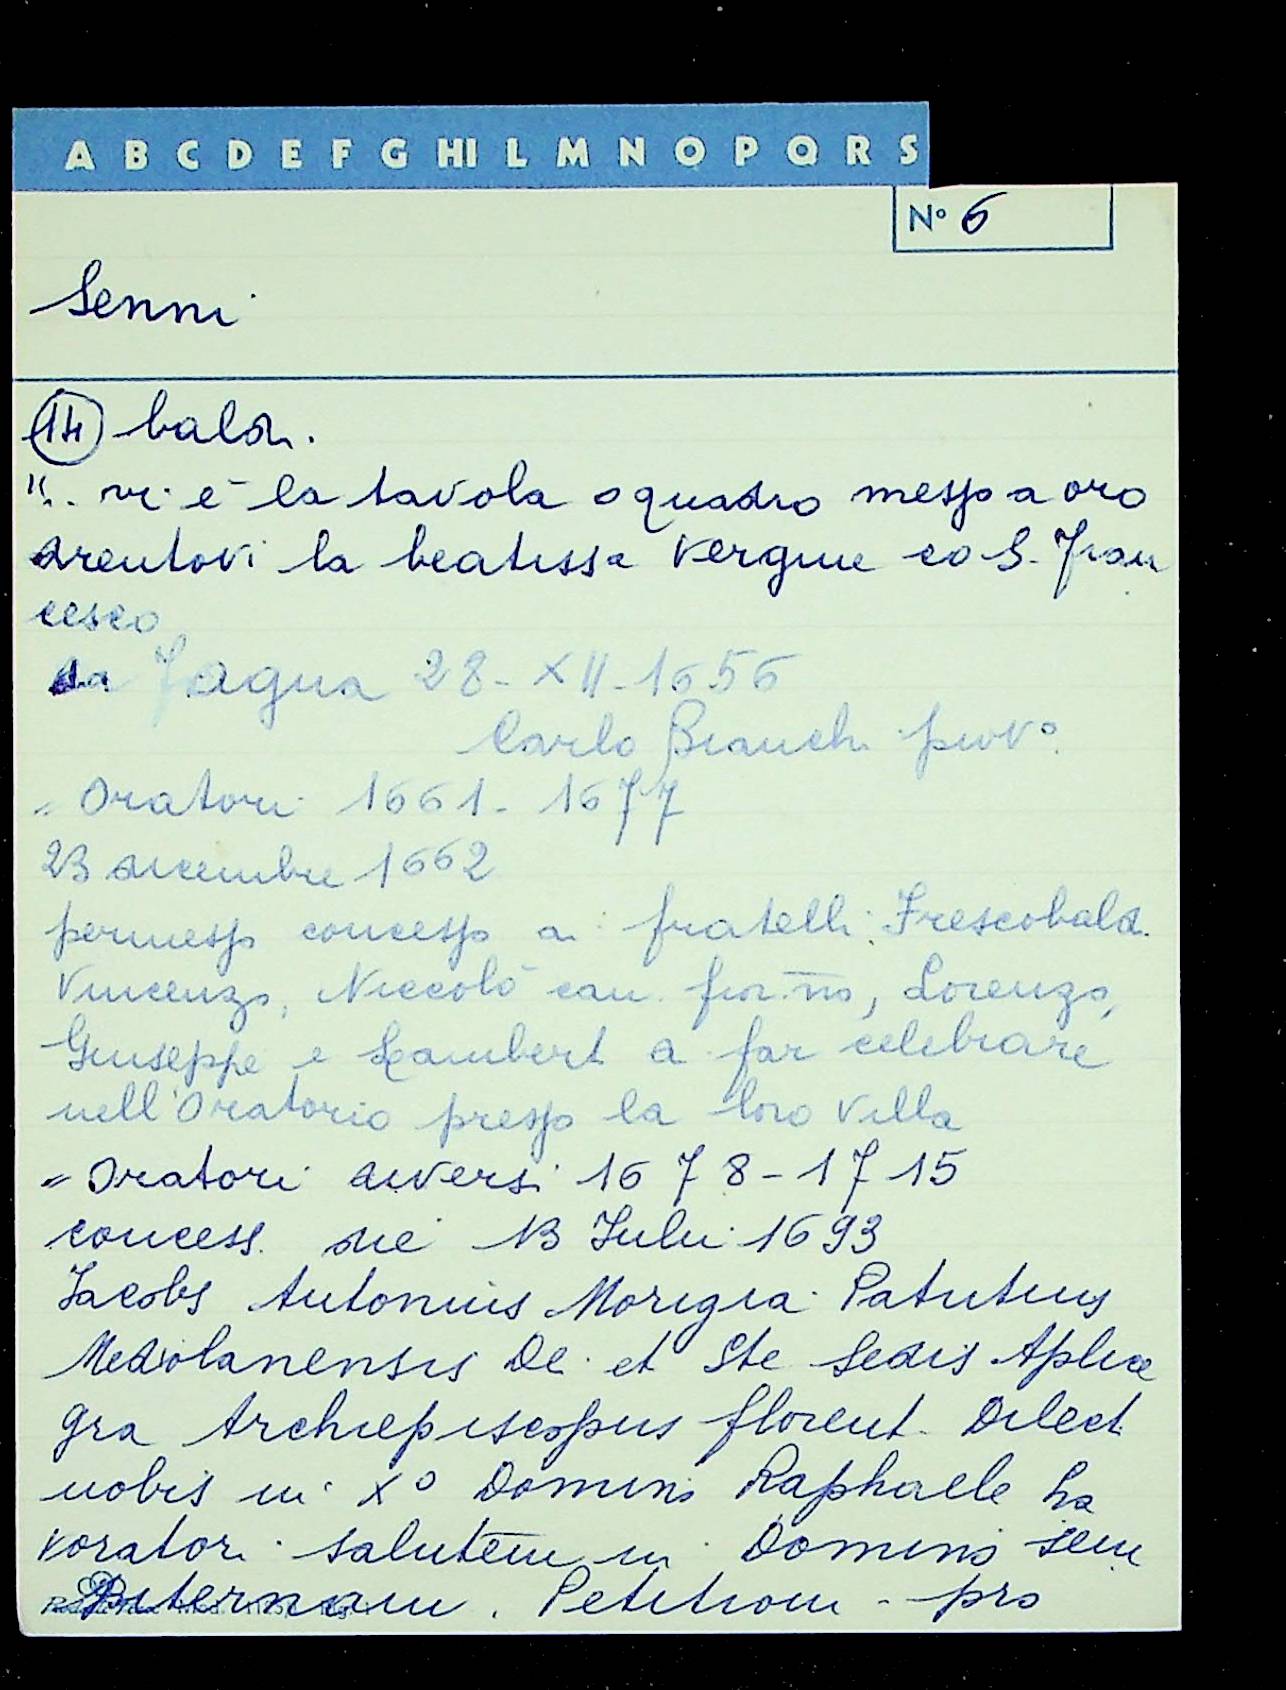 A B C D E F G HI L M N O P Q R S
N° 6
Senni
14 baldi.
".. vi è la tavola o quadro messo a oro
drentovi la beatissa Vergine eo S. Fran
cesco
da Fagna 28-XII-1656
Carlo Bianchi piov°.
" Oratori 1661-1677
23 dicembre 1662
permesso concesso ai fratelli Frescobaldi
Vincenzo, Niccolò can. fior.no, Lorenzo,
Giuseppe e Lambert a far celebrare
nell'Oratorio presso la loro villa
" Oratori diversi 1678-1715
concess. die 13 Julii 1693
Jacobs Antonius Morigia Patritius
Mediolanensis Dei et Ste Sedis Aplice
gra Archiepiscopus florent. Dilect
nobis in X° Domini Raphaele La
voratori salutem in Domino sem
piternam. Petitioni - pro